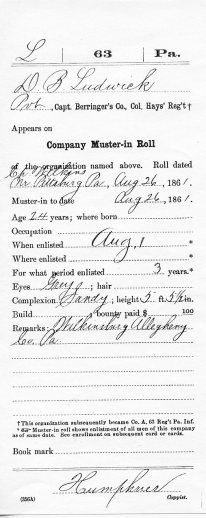 L | 63 | Pa.
D. B. Ludwick
Pvt, Capt. Berringer's Co., Col. Hays' Reg't †
Appears on
Company Muster-in Roll
of the organization named above. Roll dated
Cp Wilkins
Nr Pittsburg Pa, Aug 26, 1861.
Muster-in to date Aug 26, 1861.
Age 24 years; where born
Occupation
When enlisted Aug 1 *
Where enlisted *
For what period enlisted 3 years.*
Eyes Grey; hair
Complexion Sandy; height 5 ft. 5½ in.
Build ; bounty paid $ 100
Remarks: Wilkinsburg Allegheny
Co. Pa.
† This organization subsequently became Co. A, 63 Reg't Pa. Inf.
* Muster-in roll shows enlistment of all men of this company
as of same date. See enrollment on subsequent card or cards.
Book mark
Humphries
(356h) Copyist.